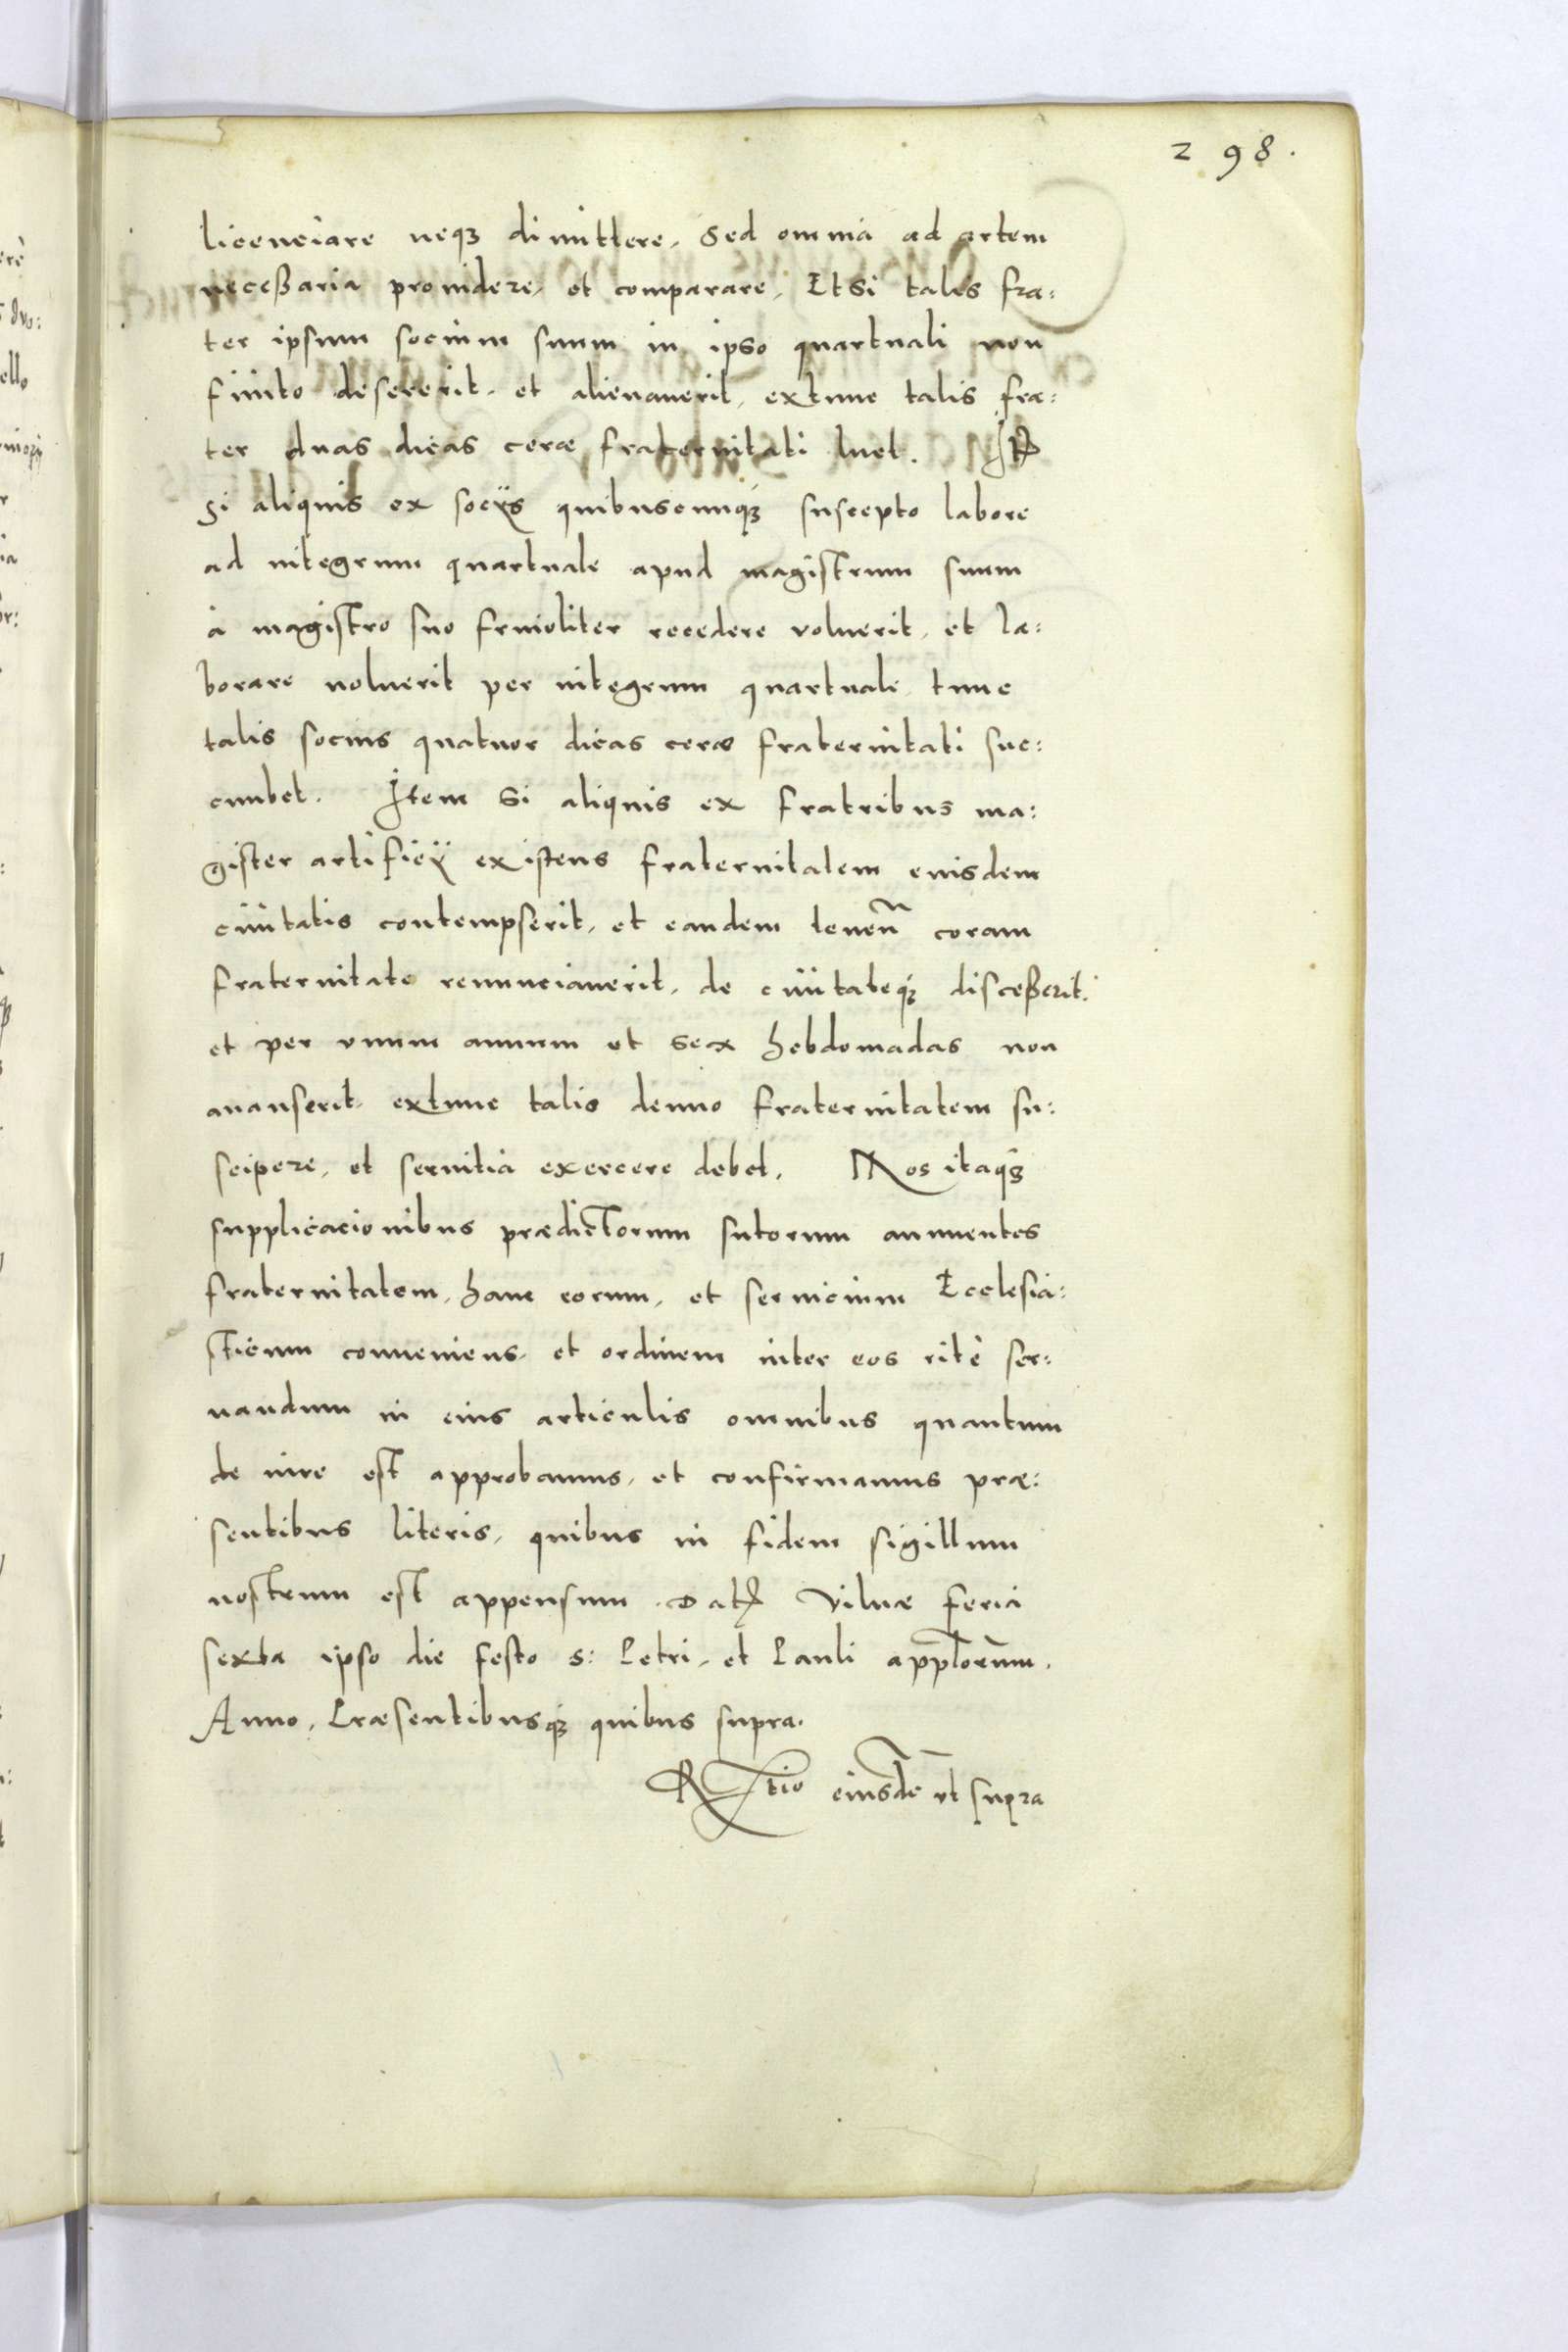 298.
licenciare neqꝫ dimittere, Sed omnia ad artem
necessaria prouidere, et comparare, Et si talis fra:
ter ipsum socium suum in ipso quartuali non
finito deseruerit, et alienauerit, extunc talis fra:
ter duas dicas ceræ fraternitati luet. It
Si aliquis ex socijs quibuscunqꝫ suscepto labore
ad integrum quartuale apud magistrum suum
à magistro suo friuoliter recedere voluerit, et la:
borare noluerit per integrum quartuale, tunc
talis socius quatuor dicas ceræ fraternitati suc:
cumbet. Item Si aliquis ex fratribus ma:
gister artificij existens fraternitatem euisdem
ciuitatis contempserit, et eandem tenen̄ coram
fraternitate renunciauerit, de ciuitateqꝫ discesserit,
et per vnum annum et sex hebdomadas non
manserit, extunc talis denuo fraternitatem su:
scipere, et seruitia exercere debet. Nos itaqꝫ
supplicacionibus prædictorum sutorum annuentes
fraternitatem, hanc eorum, et seruicium Ecclesia:
sticum conueniens, et ordinem inter eos ritè ser:
uandum in eius articulis omnibus quantum
de iure est approbamus, et confirmamus præ:
sentibus literis, quibus in fidem sigillum
nostrum est appensum. Dat Vilnæ feria
sexta ipso die festo S: Petri, et Pauli app̄lorum.
Anno, Præsentibusqꝫ quibus supra.
Rtio eiusdē vt supra